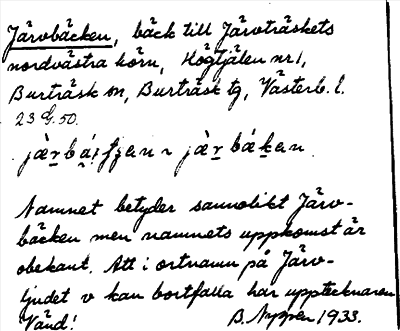 Järvbäcken, bäck till Järvträskets
nordvästra hörn, Högtjälen nr 1,
Burträsk sn, Burträsk tg, Västerb. l.
23 G. 50.
Namnet betyder sannolikt Järv-
bäcken men namnets uppkomst är
obekant. Att i ortnamn på Järv-
ljudet v kan bortfalla har upptecknaren
Vänd! B. Nygren 1933.